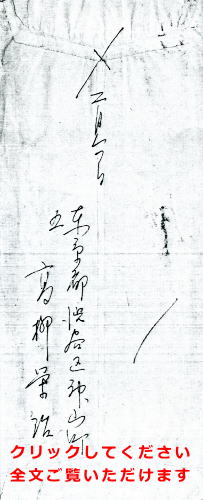 〆
東京都渋谷区神山町
五
高柳
クリックしてください
全文ご覧いただけます